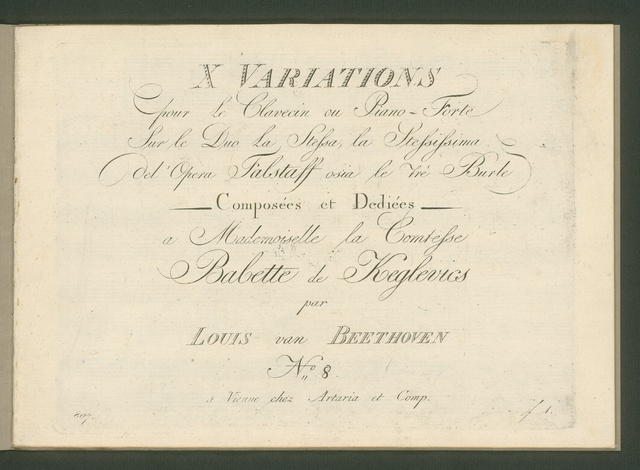 X VARIATIONS
pour le Clavecin ou Piano-Forte
Sur le Duo La Stessa, la Stessissima
del' Opera Falstaff osia le tré Burle
Composées et Dediées
a Mademoiselle la Comtesse
Babette de Keglevics
par
LOUIS van BEETHOVEN
No 8
a Vienne chez Artaria et Comp.